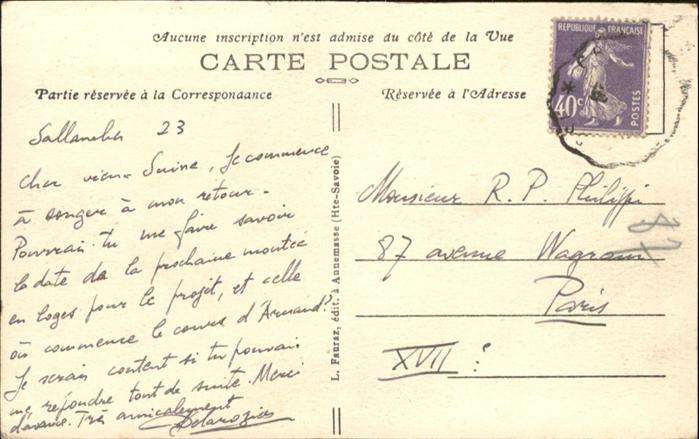 Aucune inscription n'est admise du côté de la Vue
CARTE POSTALE
Partie réservée à la Correspondance
Réservée à l'Adresse
RÉPUBLIQUE FRANÇAISE
40c
POSTES
Sallanches 23
Cher vieux Suisse, Je commence
à songer à mon retour.
Pourrais-tu me faire savoir
la date de la prochaine montée
en loges pour le projet, et celle
où commence le cours d'Armand?
Je serais content si tu pouvais
me répondre tout de suite. Merci
d'avance. Très amicalement
Delarozière
L. Fauraz, édit. à Annemasse (Hte-Savoie)
Monsieur R. P. Philippi
87 avenue Wagram
Paris
XVII e
87